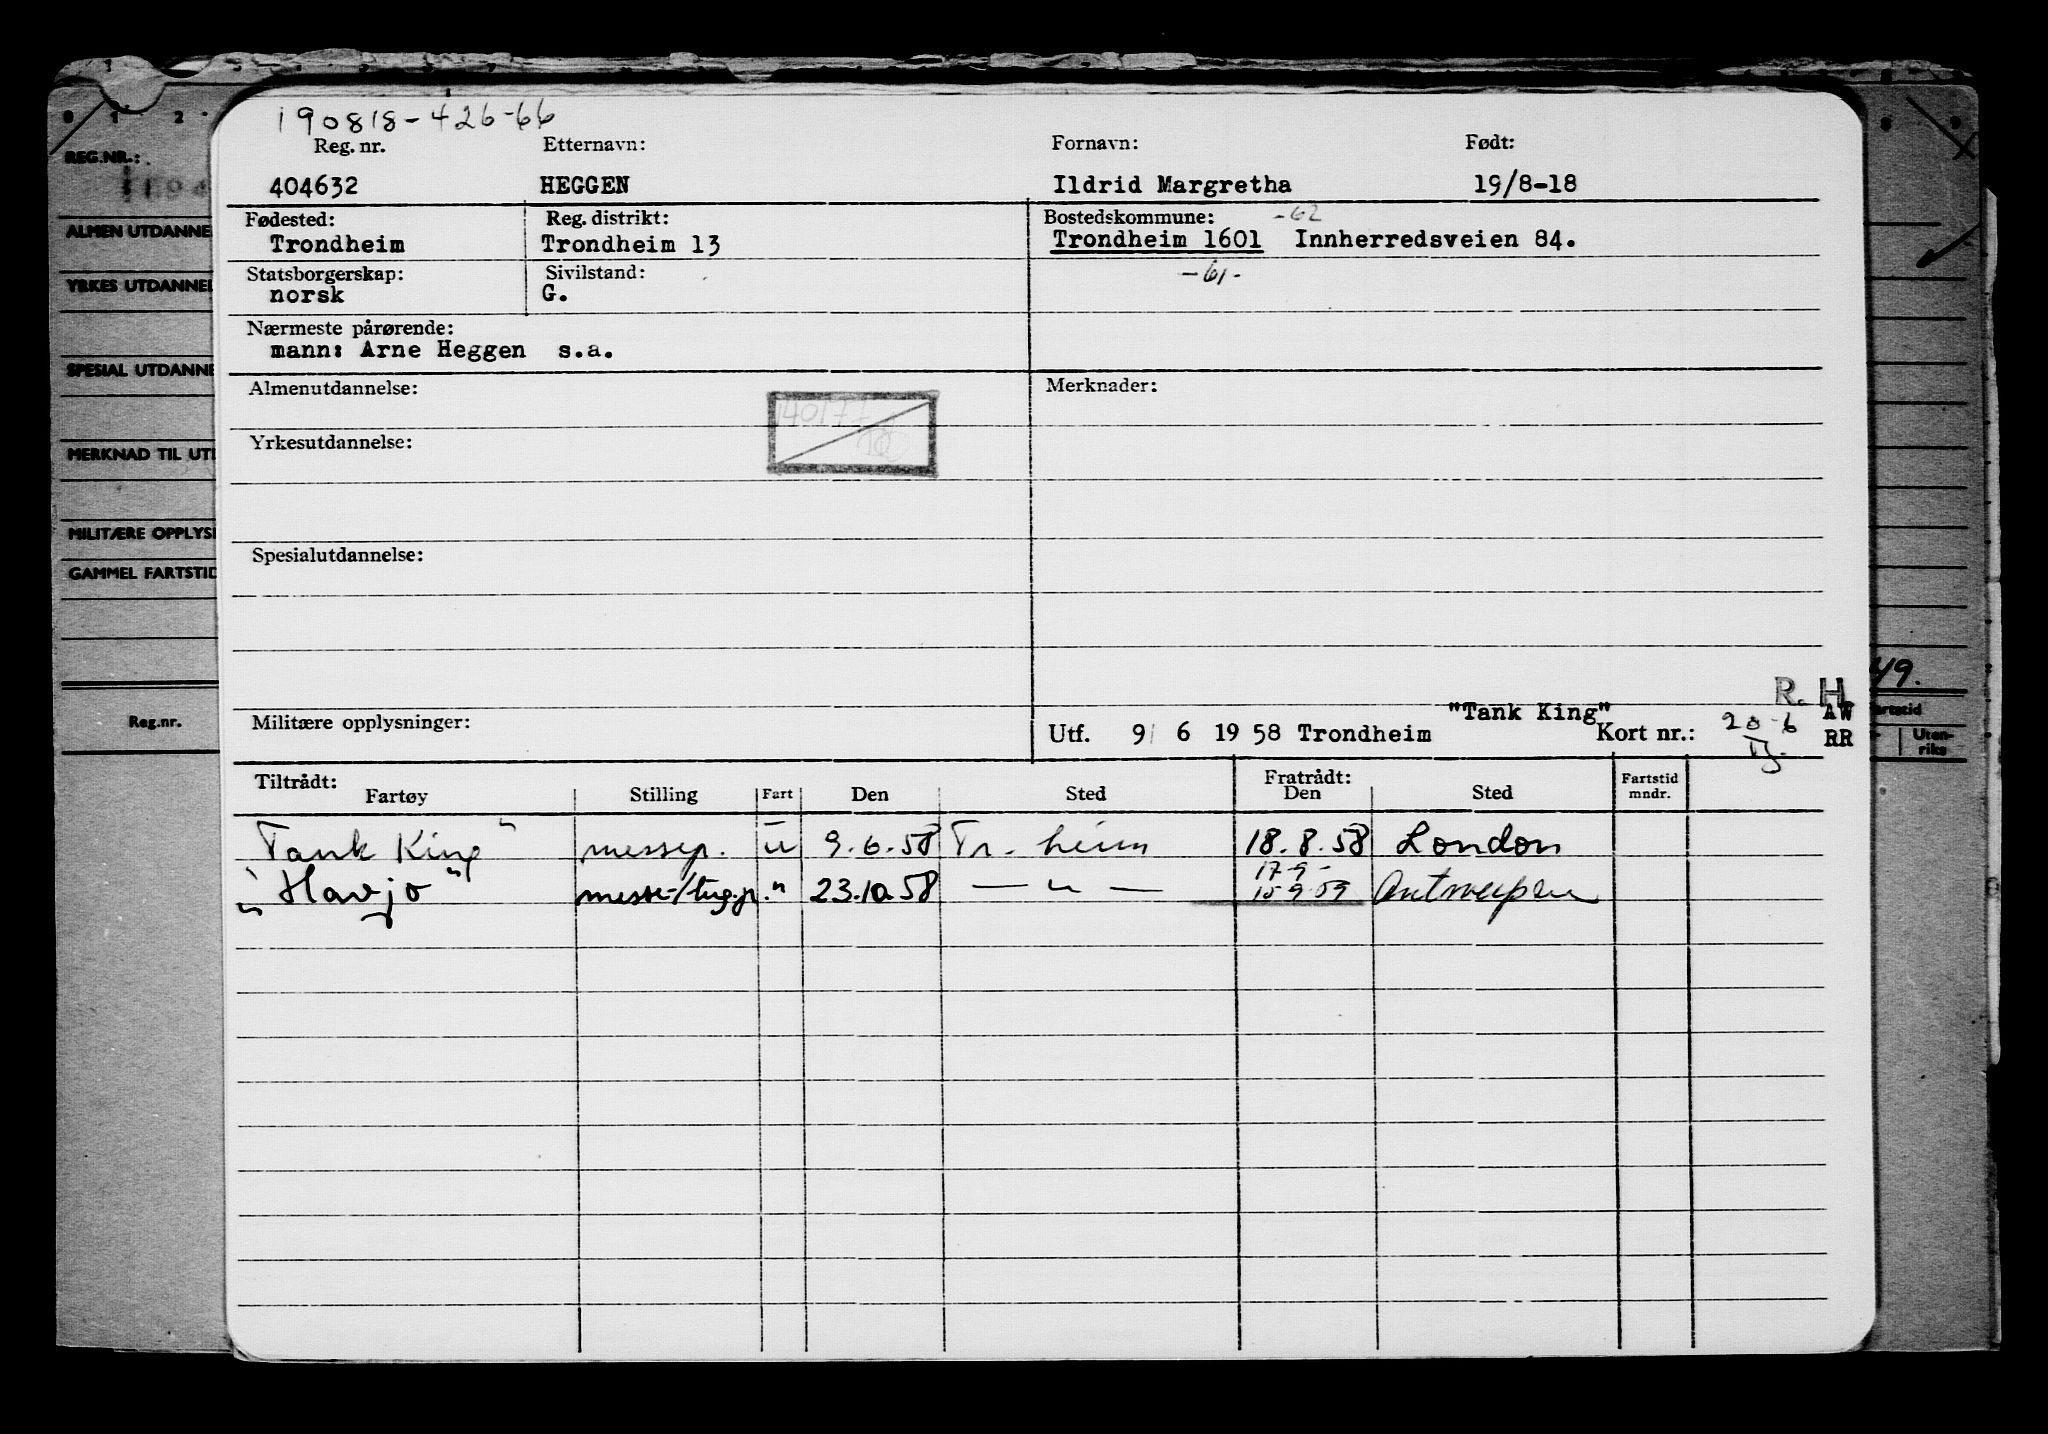 190818-426-66
Reg. nr. Etternavn: Fornavn: Født:
404632 HEGGEN Ildrid Margretha 19/8-18
Fødested: Reg. distrikt: Bostedskommune: -62
Trondheim Trondheim 13 Trondheim 1601 Innherredsveien 84.
Statsborgerskap: Sivilstand: -61-
norsk G.
Nærmeste pårørende:
mann: Arne Heggen s.a.
Almenutdannelse: Merknader:
140177
Yrkesutdannelse:
Spesialutdannelse:
R. H.
"Tank King" AW
Militære opplysninger: Utf. 9/ 6 19 58 Trondheim Kort nr.: 20-6 RR
Tiltrådt: Fratrådt: Fartstid
Fartøy Stilling Fart Den Sted Den Sted mndr.
Tank King" messep. u 9.6.58 Tr.heim 18.8.58 London
17-9-
"Havjo" messe-/bug.p. " 23.10.58 — " — 15-9-59 Antwerpen
0 1 2
REG.NR.:
ALMEN UTDANNE
YRKES UTDANNEL
SPESIAL UTDANNE
MERKNAD TIL UT
MILITÆRE OPPLYS
GAMMEL FARTSTID
Reg.nr.
8 9
49.
artstid
Uten-
riks